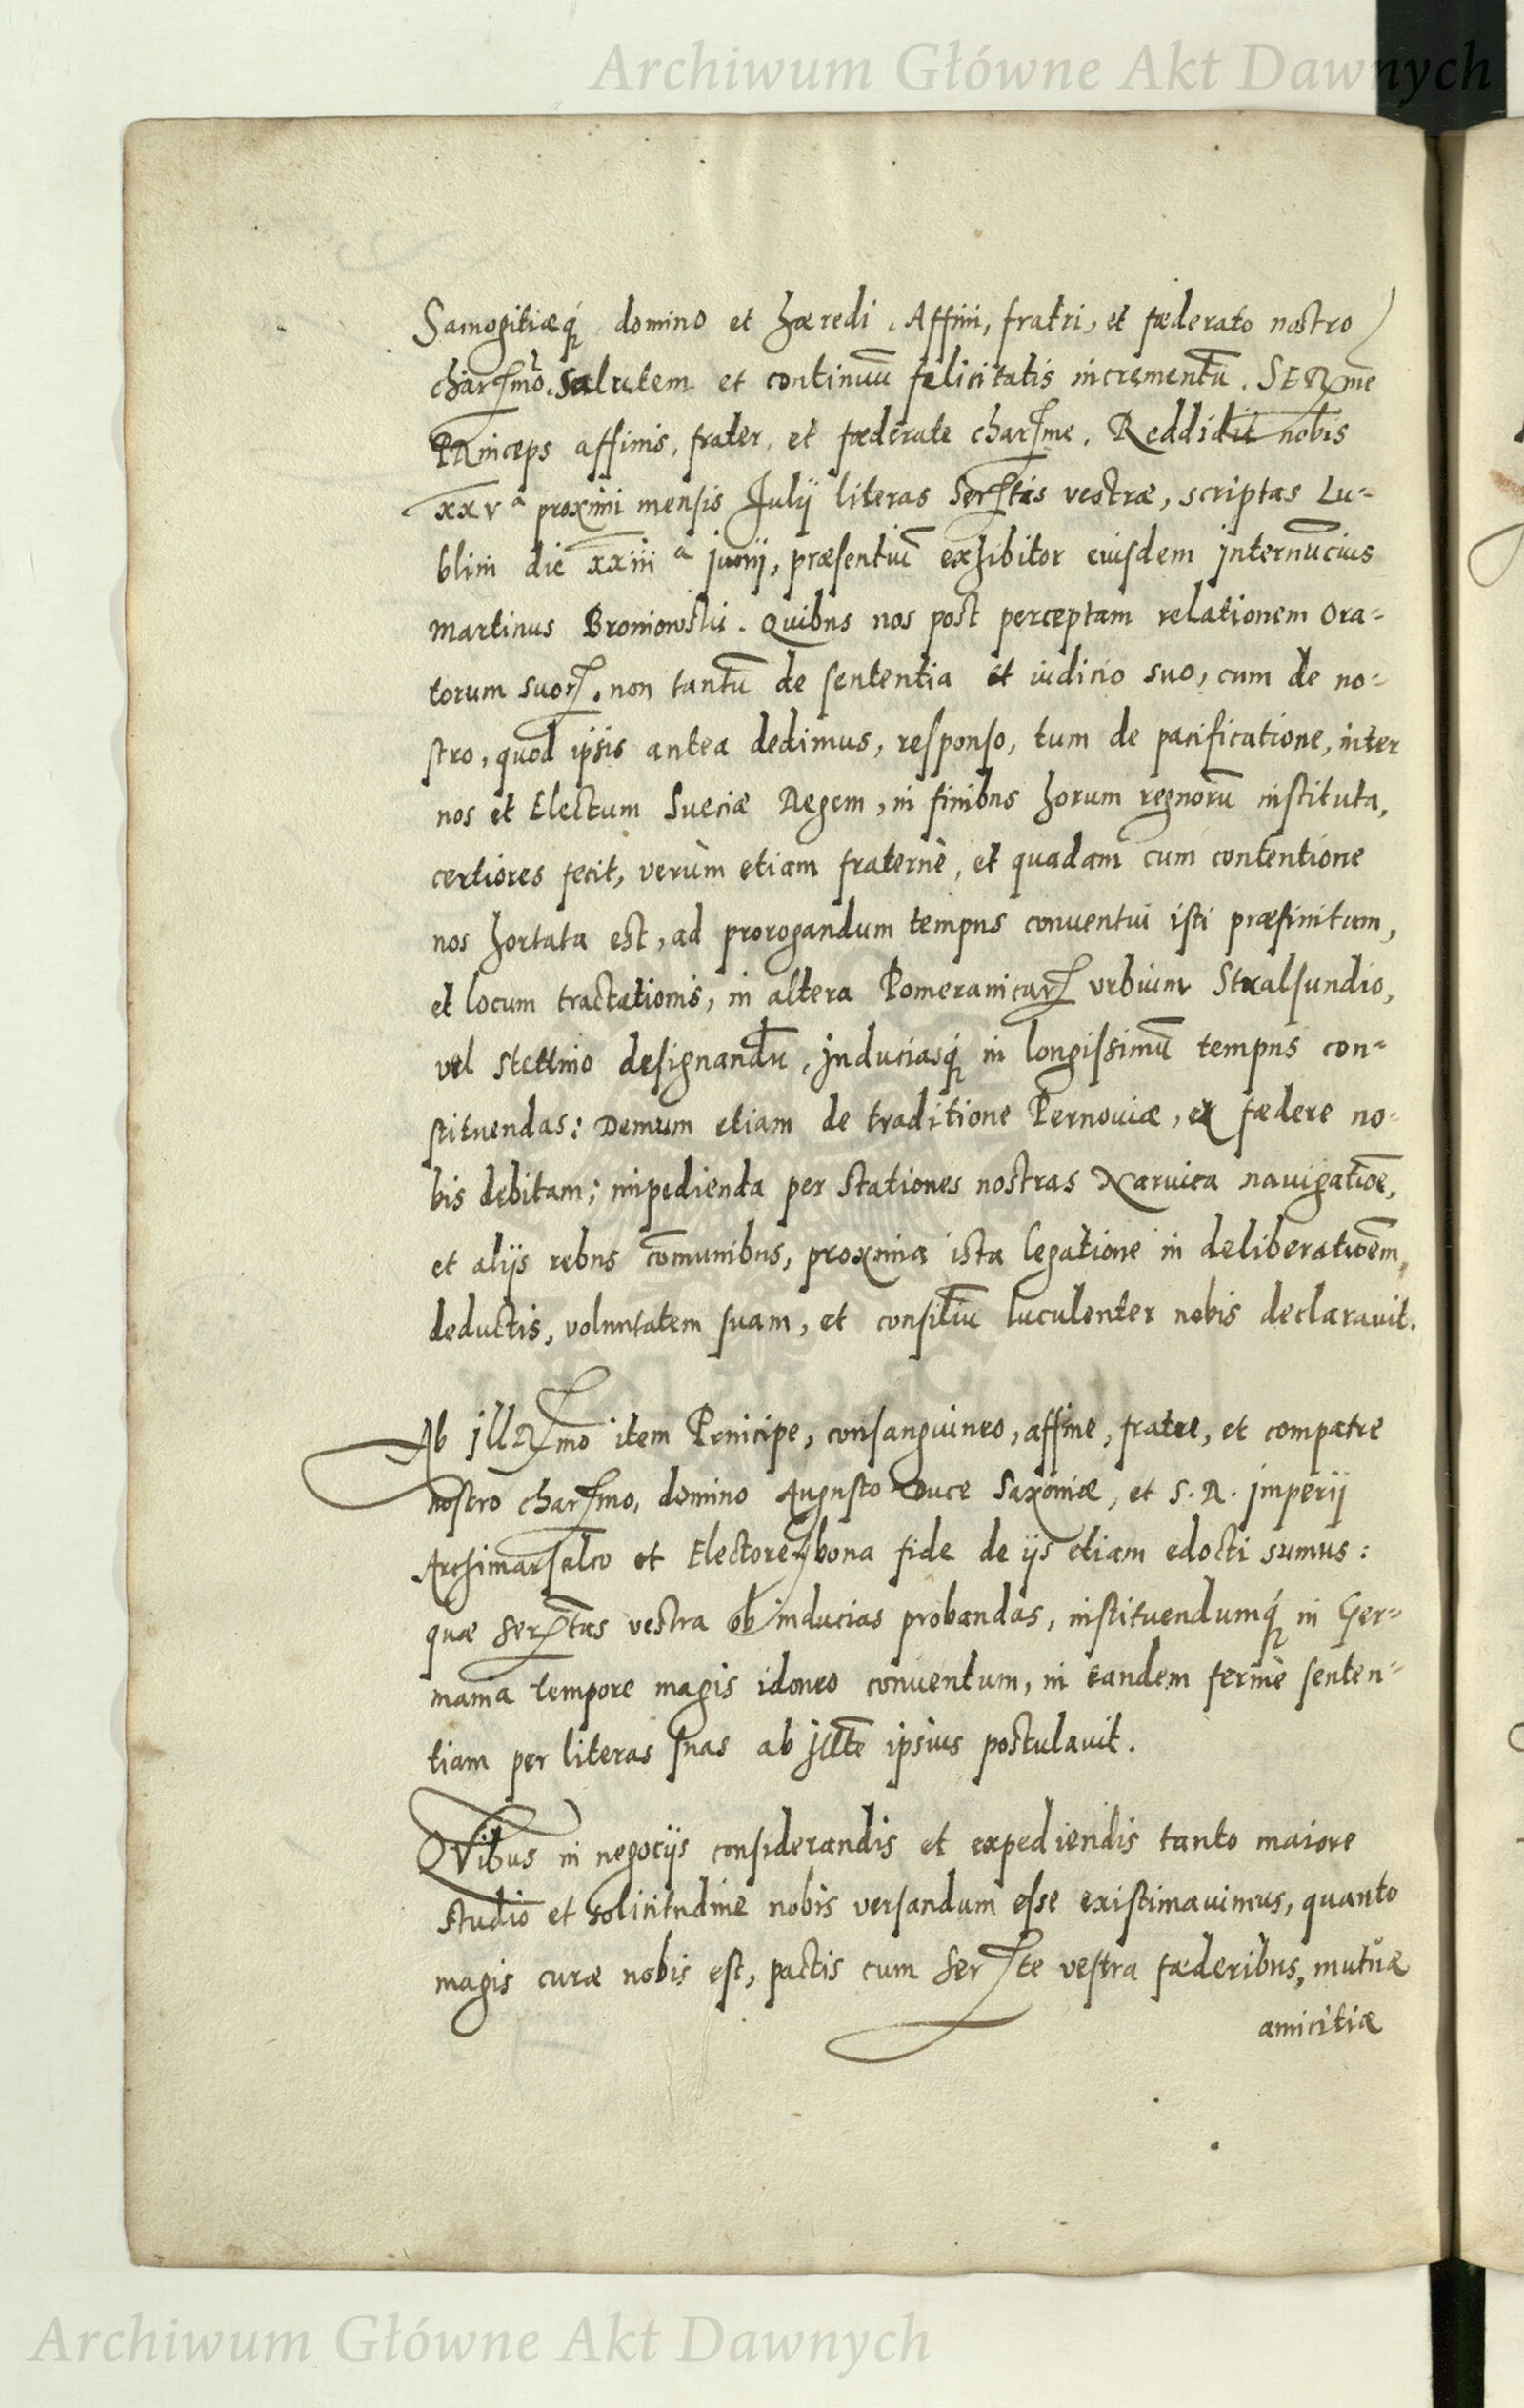 Archiwum Główne Akt Dawnych
Samogitiæq́ domino et hæredi. Affini, fratri, et fœderato nostro
charismo. Salutem et continuū felicitatis incrementū. SERme
PRinceps affinis, frater, et fœderate charisme. Reddidit nobis
xxvª proximi mensis Julij literas Sertis vestræ, scriptas Lu-
blini die xxiiiª junij, præsentiū exhibitor eiusdem internuncius
Martinus Broniowskis. Quibus nos post perceptam relationem Ora-
torum suor, non tantū de sententia et iudicio suo, cum de no-
stro, quod ipsis antea dedimus, responso, tum de pacificatione, inter
nos et Electum Sueciæ Regem, in finibus horum regnorū instituta,
certiores fecit, verùm etiam fraternè, et quadam cum contentione
nos hortata est, ad prorogandum tempus conuentui isti præfinitum,
et locum tractationis, in altera Pomeranicar vrbium Stralsundio,
vel Stettino designandū. Induciasq́ in longissimū tempus con-
stituendas: Demum etiam de traditione Pernouiæ, ex fædere no-
bis debitam; impedienda per stationes nostras Naruica nauigatiōe,
et alijs rebus cōmunibus, proxima ista legatione in deliberatiōem,
deductis, voluntatem suam, et consiliū luculenter nobis declarauit.
Ab illRmo item Principe, consanguineo, affine, fratre, et compatre
nostro charismo, domino Augusto Duce Saxoniæ, et S. R. imperij
Archimarsalco et Electore, bona fide de ijs etiam edocti sumus:
quæ Sertas vestra ob inducias probandas, instituendumq́ in Ger-
mania tempore magis idoneo conuentum, in eandem fermè senten-
tiam per literas suas ab illte ipsius postulauit.
QVibus in negocijs considerandis et expediendis tanto maiore
studio et solicitudine nobis versandum esse existimauimus, quanto
magis curæ nobis est, pactis cum Serte vestra fæderibus, mutuæ
amicitiæ
Archiwum Główne Akt Dawnych